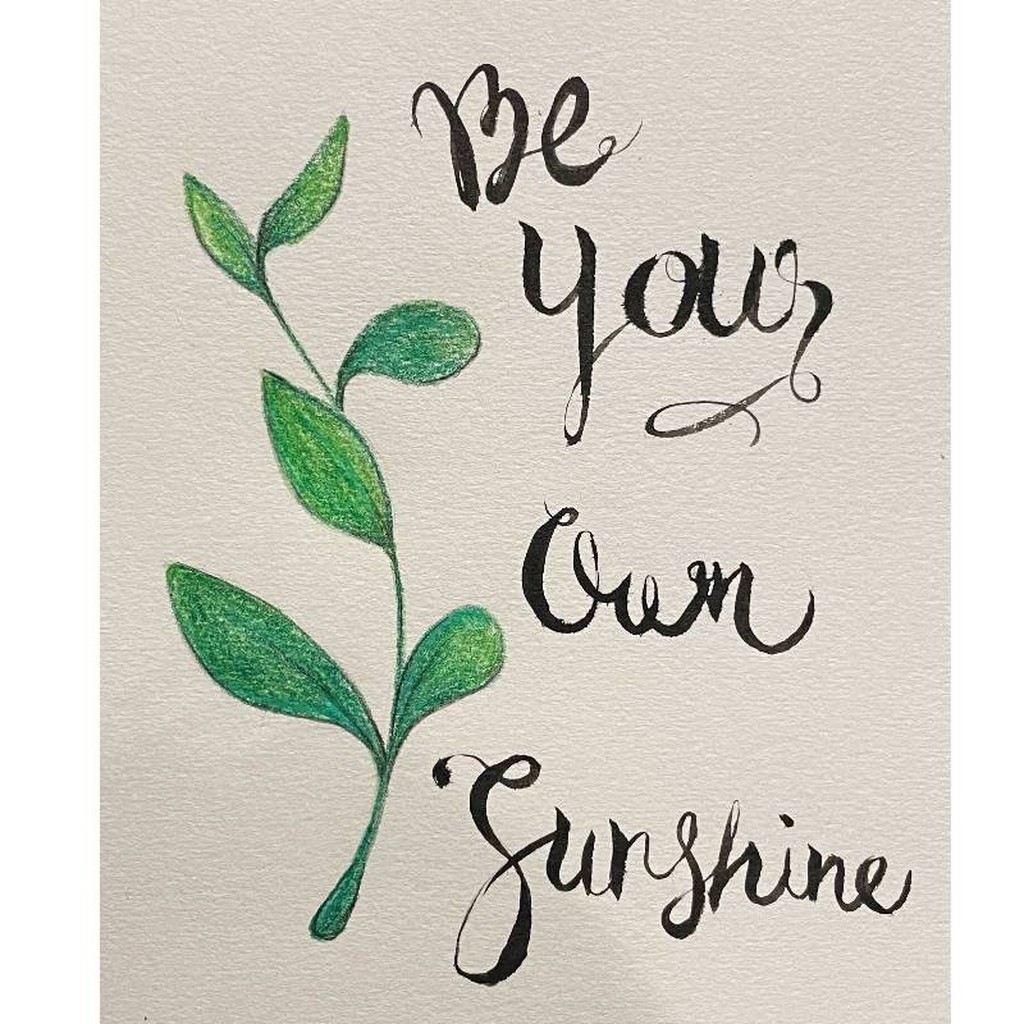 Be
your
Own
Sunshine